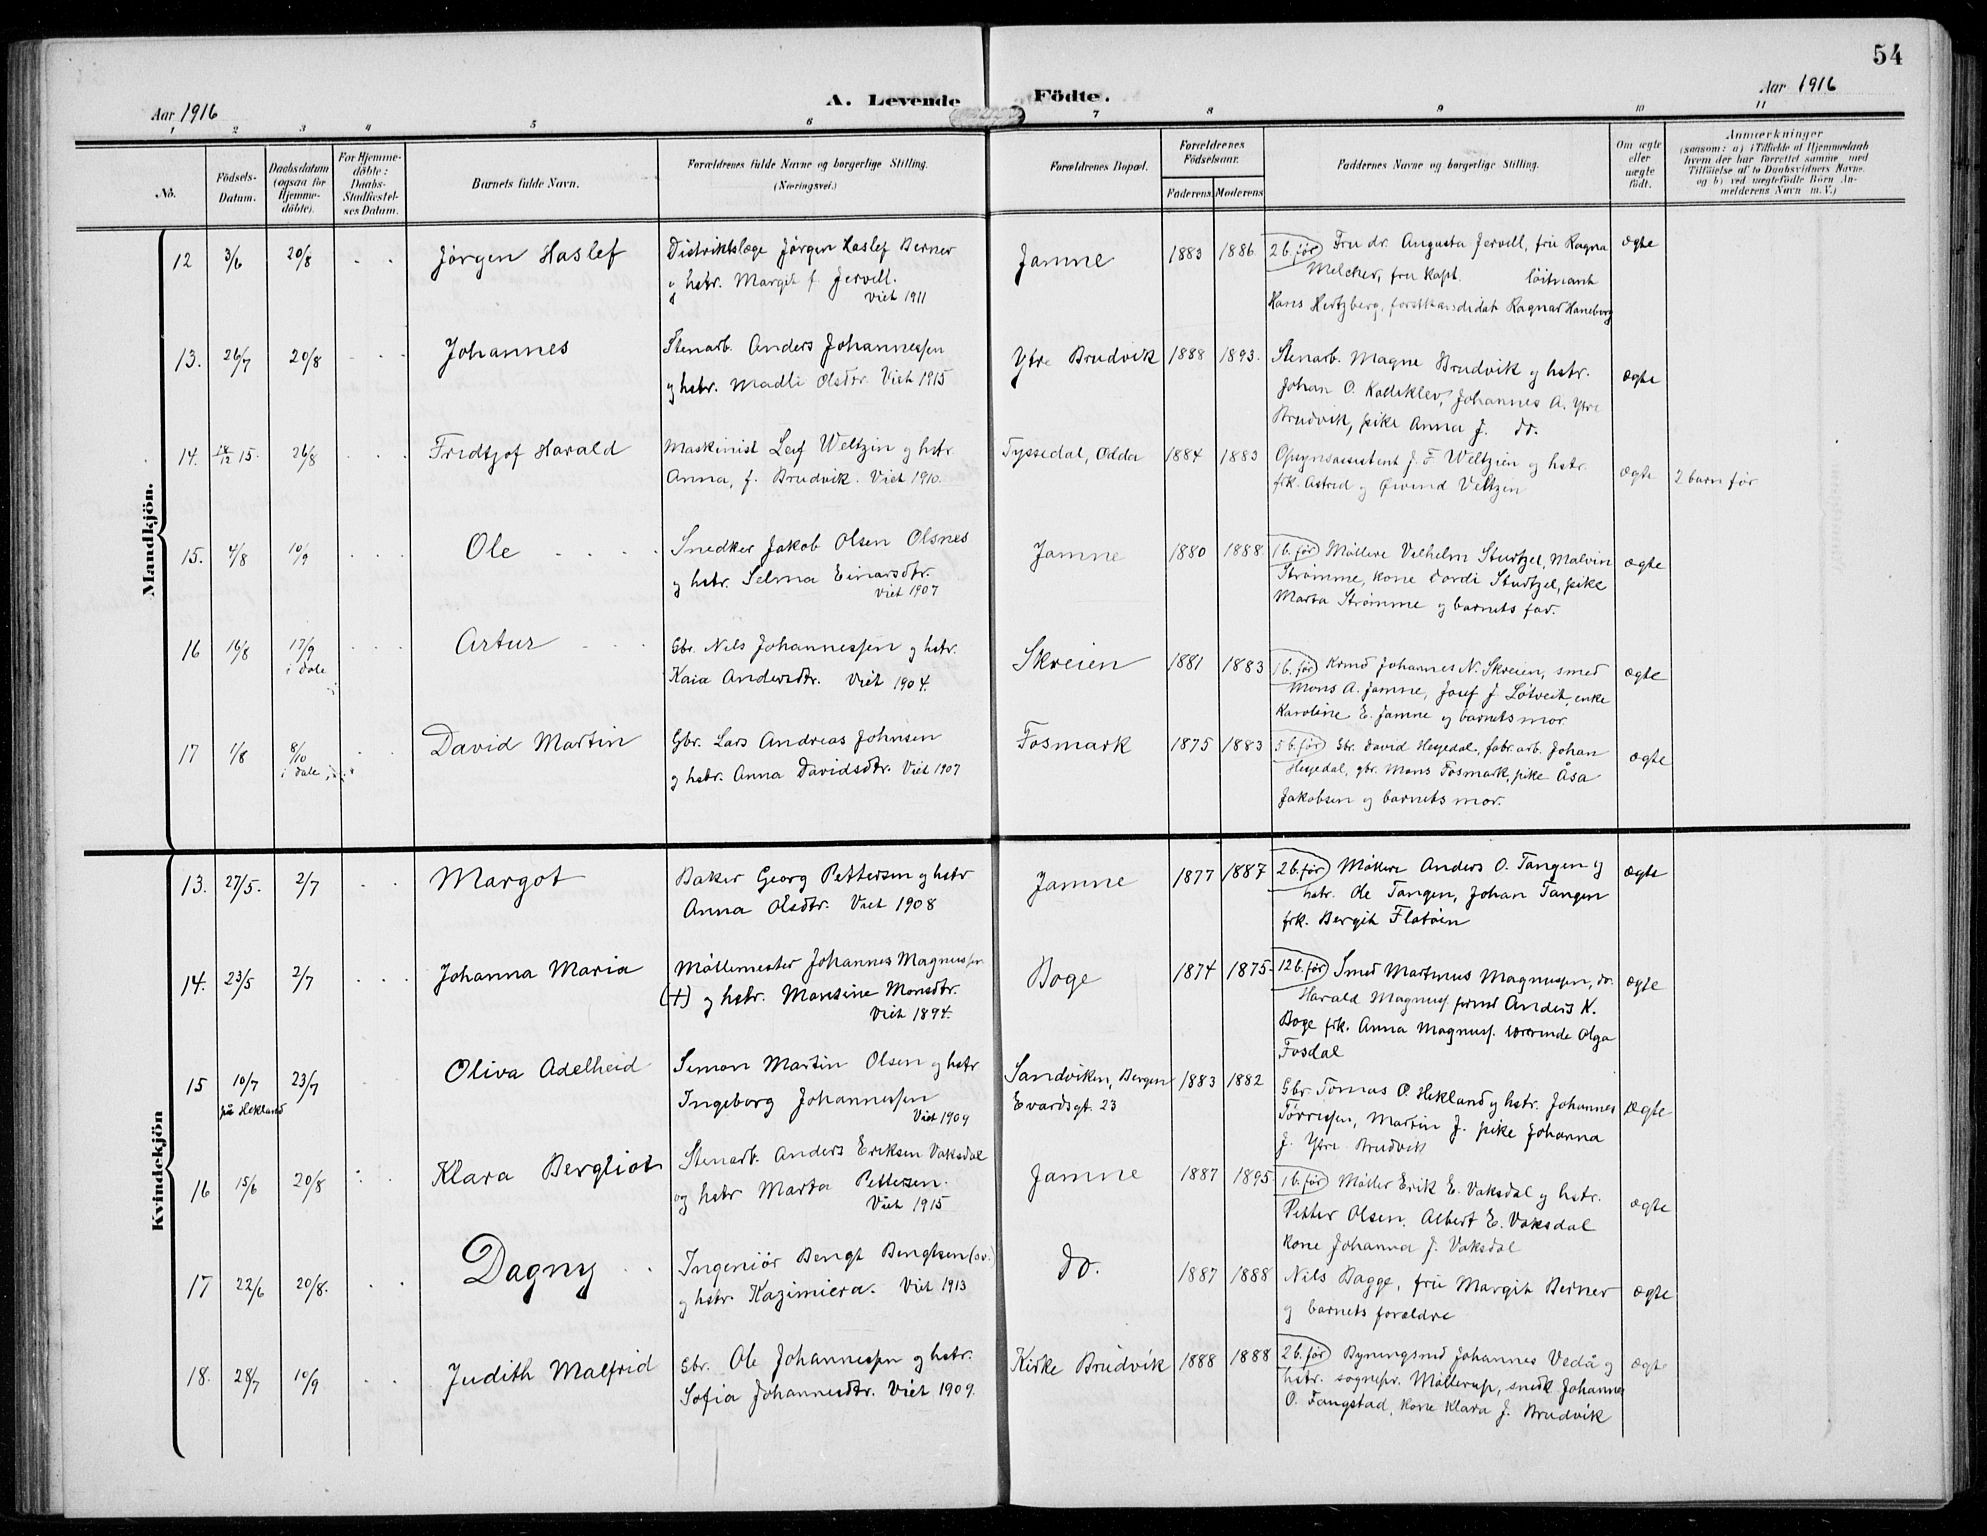 54
Aar 1916
A. Levende Födte.
Aar 1916
1 2 3 4 5 6 7 8 9 10 11
No.
Födsels-Datum.
Daabsdatum (ogsaa for Hjemme-döbte).
For Hjemme-döbte: Daabs-Stadfæstel-ses Datum.
Barnets fulde Navn.
Forældrenes fulde Navne og borgerlige Stilling.
(Næringsvei.)
Forældrenes Bopæl.
Forældrenes Födselsaar.
Faderens Moderens
Faddernes Navne og borgerlige Stilling.
Om ægte eller uægte födt.
Anmærkninger
(saasom: a) i Tilfælde af Hjemmedaab hvem der har forrettet samme, med Tilföielse af to Daabsvidners Navne, og b) ved uægtefödte Börn An-melderens Navn m. V.)
Mandkjön.
12 3/6 20/8 . . Jørgen Haslef
Distriktslæge Jørgen Haslef Berner
og hstr. Margit f. Jervell.
Viet 1911
Jamne 1883 1886
2 b. før Fru dr. Augusta Jervell, fru Ragna
Melcher, fru Kapt. löitnant
Hans Hertzberg, forstkandidat Ragnar Haneborg
ægte
13. 26/7 20/8 . . . Johannes
Stenarb. Anders Johannessen
og hstr. Madli Olsdtr. Viet 1915
Ytre Brudvik 1888 1893.
Stenarb. Magne Brudvik og hstr.
Johan O. Kalleklev, Johannes A. Ytre
Brudvik, pike Anna J. do.
ægte
14. 15. 26/8 . . . Fredtjof Harald
Maskinist Leif Weltzin og hstr.
Anna, f. Brudvik. Viet 1910.
Tyssedal, Odda 1884 1883
Opsynsassistent J. F. Weltzien og hstr.
frk. Astrid og Øivind Veltzin
ægte
2 barn før
15. 4/8 10/9 . . . Ole . . . .
Snedker Jakob Olsen Olsnes
og hstr. Selma Einarsdtr.
Viet 1907
Jamne 1880 1888
1 b. før Møllere Vilhelm Sturtzel, Malvin
Strømme, kone Dordi Sturtzel, pike
Marta Strømme og barnets far.
ægte
16 16/8 17/9 . . . Artur . . .
i Dale
Gbr. Nils Johannessen og hstr.
Kaia Andersdtr. Viet 1904.
Skreien 1881 1883
1 b. før Krmd Johannes N. Skreien, smed
Mons A. Jamne, Josef J. Løtveit, enke
Karoline E. Jamne og barnets mor.
ægte
17 1/8 8/10 . . David Martin
i Dale
Gbr. Lars Andreas Johnsen
og hstr. Anna Davidsdtr. Viet 1907
Fosmark 1875 1883
5 b. før Gbr. David Hesjedal, fabr. arb. Johan
Hesjedal, gbr. Mons Fosmark, pike Åsa
Jakobsen og barnets mor.
ægte
Kvindekjön
13. 27/5. 2/7 . . Margot
Baker Georg Pettersen og hstr
Anna Olsdtr. Viet 1908
Jamne 1877 1887
2 b. før Møllere Anders O. Tangen og
hstr. Ole Tangen, Johan Tangen
frk. Bergit Flatøen
ægte
14. 23/5 2/7 . . . Johanna Maria
Møllemester Johannes Magnussen
(+) og hstr. Martine Monsdtr.
Viet 1894.
Boge 1874 1875.
12 b. før Smed Martinus Magnussen, do.
Harald Magnuss. Anders K.
Boge frk. Anna Magnuss. lærerinde Olga
Fosdal
ægte
15 10/7 23/7 . . Oliva Adelheid
på Hekland
Simon Martin Olsen og hstr
Ingeborg Johannessen
Viet 1909
Sandviken, Bergen
Evardsgt. 23
1883 1882
Gbr. Tomas O. Hekland og hstr. Johannes
Tørrissen, Martin J. pike Johanna
J. Ytre Brudvik
Ægte
16 15/6 20/8 . . Klara Bergliot
Stenarb. Anders Eriksen Vaksdal
og hstr Marta Pettersen.
Viet 1915
Jamne 1887 1895
1 b. før Møller Erik E. Vaksdal og hstr.
Petter Olsen. Albert E. Vaksdal
kone Johanna J. Vaksdal
ægte
17 22/6 20/8. . . Dagny . .
Ingeniør Bengt Bengtsen (sv.)
og hstr. Kazimiera. Viet 1913
do. 1887 1888
Nils Bagge, fru Margit Berner
og barnets foreldre
ægte
18. 28/7 10/9 . . Judith Malfrid
Gbr. Ole Johannessen og hstr.
Sofia Johannesdtr. Viet 1909.
Kirke Brudvik 1888 1888
2 b. før Johannes Vedå og
hstr. sognepr. Møllerup, snedk Johannes
O. Fangstad, kone Klara J. Brudvik
ægte